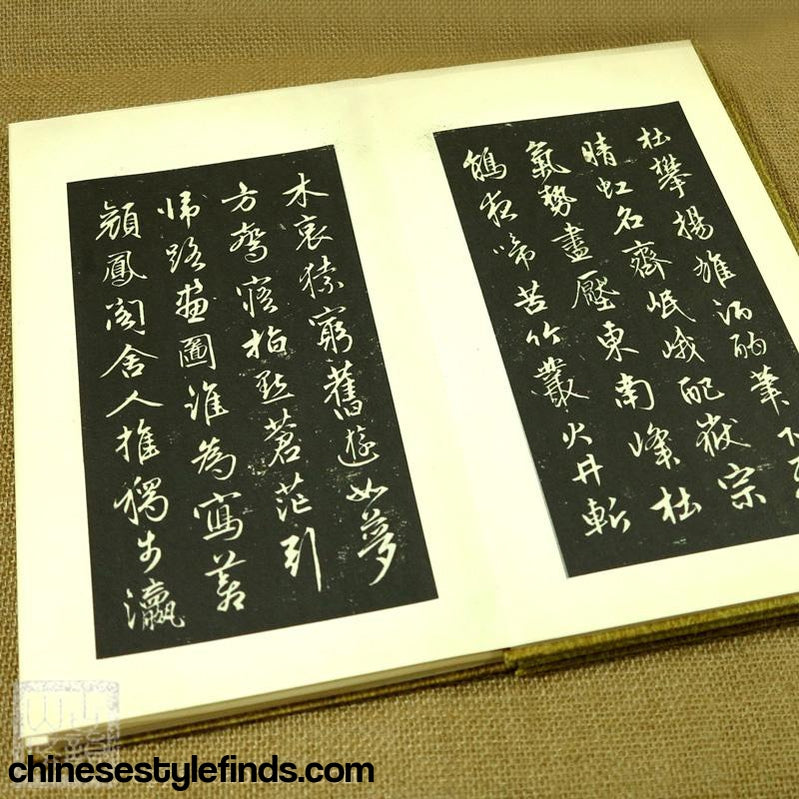 杜攀揚雄酌筆下
晴虹名齊岷峨配嶽宗
氣勢盡壓東南峰杜
鵑夜啼苦竹叢火井斬
木哀猿窮舊遊如夢
方驚寤指點蒼茫引
歸路畫圖誰為寫蒼
顏鳳閣舍人推獨步瀛
chinesestylefinds.com